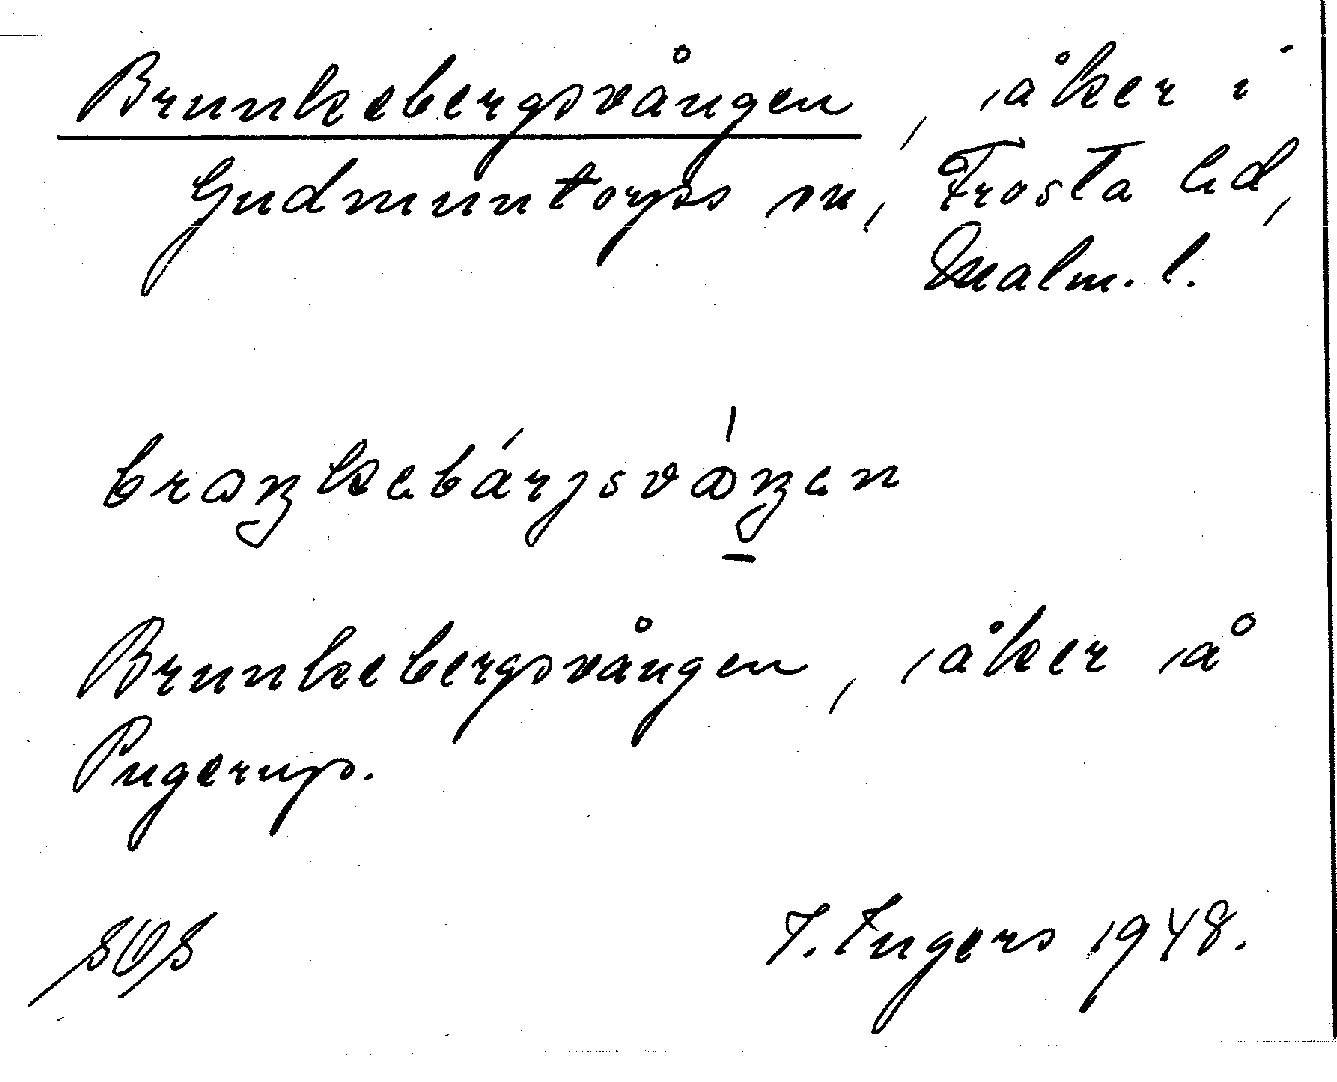 Brunkebergsvången, åker i
Gudmuntorps sn, Frosta hd,
Malm. l.
braŋkebárjsvàŋen
Brunkebergsvången, åker å
Pugerup.
SOS I. Ingers 1948.